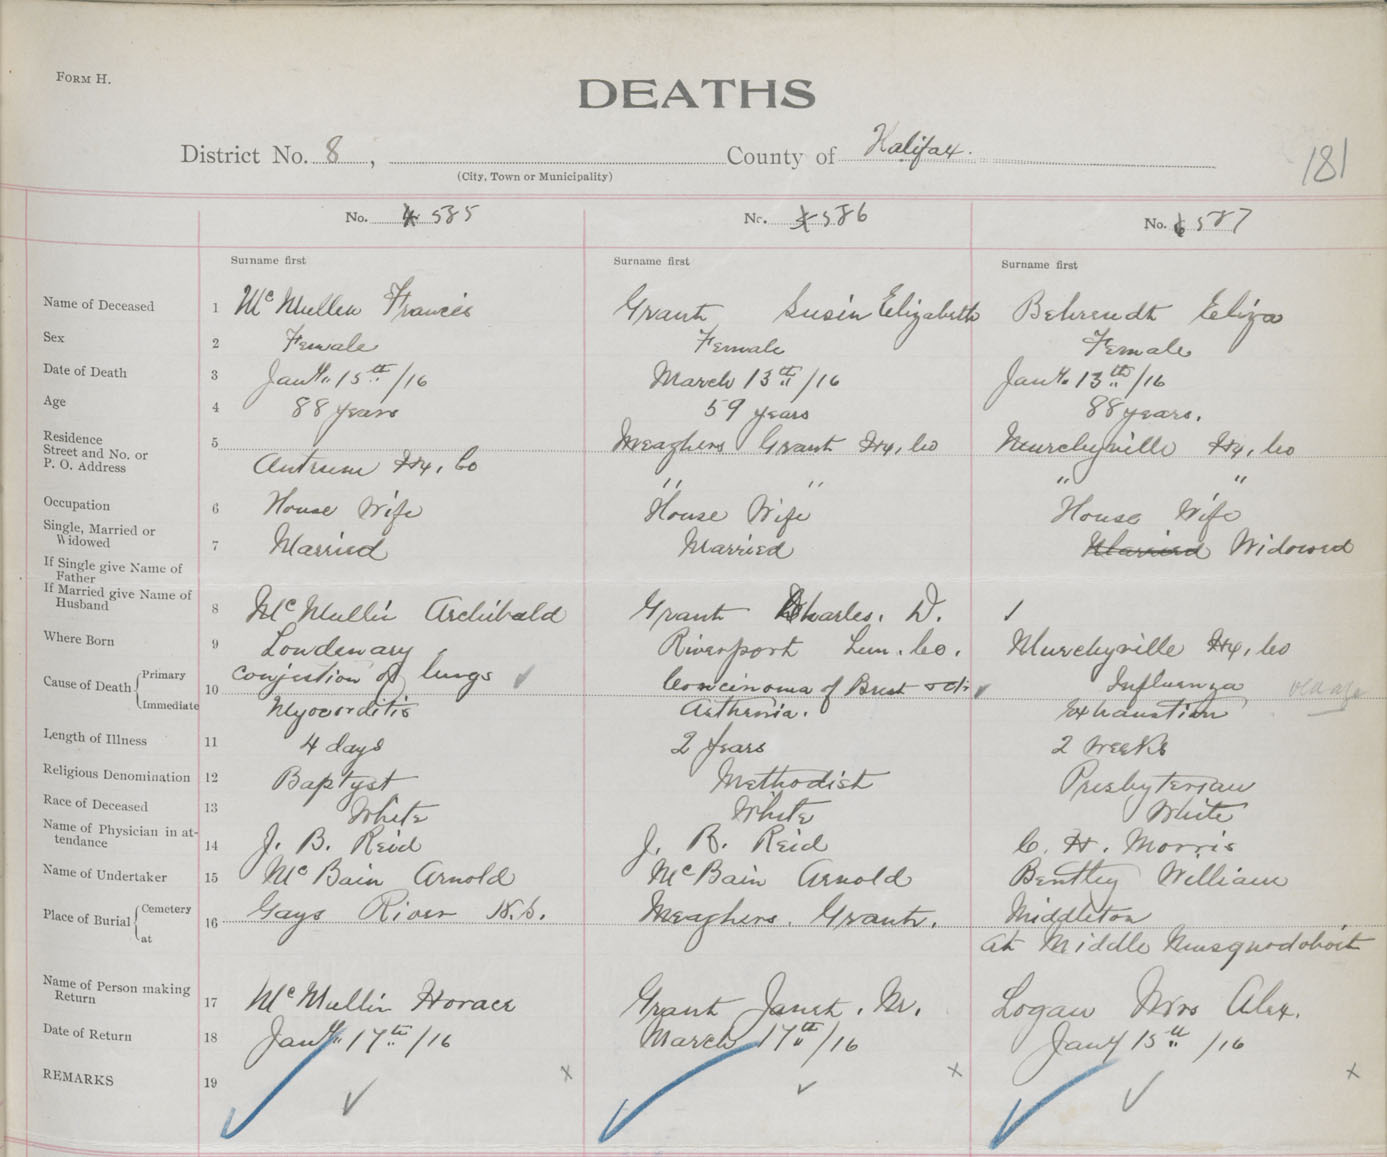 FORM H.
DEATHS
District No. 8, County of Halifax.
(City, Town or Municipality)
181
No. 4 585 No. 5 586 No. 6 587
Surname first Surname first Surname first
Name of Deceased 1 McMullen Francis Grant Susin Elizabeth Behrendt Eliza
Sex 2 Female Female Female
Date of Death 3 Jany. 15th/16 March 13th/16 Jany. 13th/16
Age 4 88 years 59 years 88 years.
Residence Street and No. or P. O. Address 5 Antrum Hx, Co Meaghers Grant Hx, Co Murchyville Hx, Co
" " " "
Occupation 6 House Wife House Wife House Wife
Single, Married or Widowed 7 Married Married Married Widowed
If Single give Name of Father
If Married give Name of Husband 8 McMullin Archibald Grant Charles. W. /
Where Born 9 Lowdewary Riverport Lun. Co. Murchyville Hx, Co
Cause of Death Primary 10 Conjestion of lungs Concinoma of Brest Influenza old age
Immediate Myocorditis Asthenia. Exhaustion
Length of Illness 11 4 days 2 years 2 weeks
Religious Denomination 12 Baptyst Methodist Presbyterian
Race of Deceased 13 White White White
Name of Physician in attendance 14 J. B. Reid J. B. Reid C. H. Morris
Name of Undertaker 15 McBain Arnold McBain Arnold Bentley William
Place of Burial Cemetery 16 Gays River N.S. Meaghers. Grant. Middleton
at at Middle Musquodoboit
Name of Person making Return 17 McMullin Horace Grant Janet. M. Logan Mrs Alex.
Date of Return 18 Jany. 17th/16 March 17th/16 Jany 15th/16
REMARKS 19 x x x